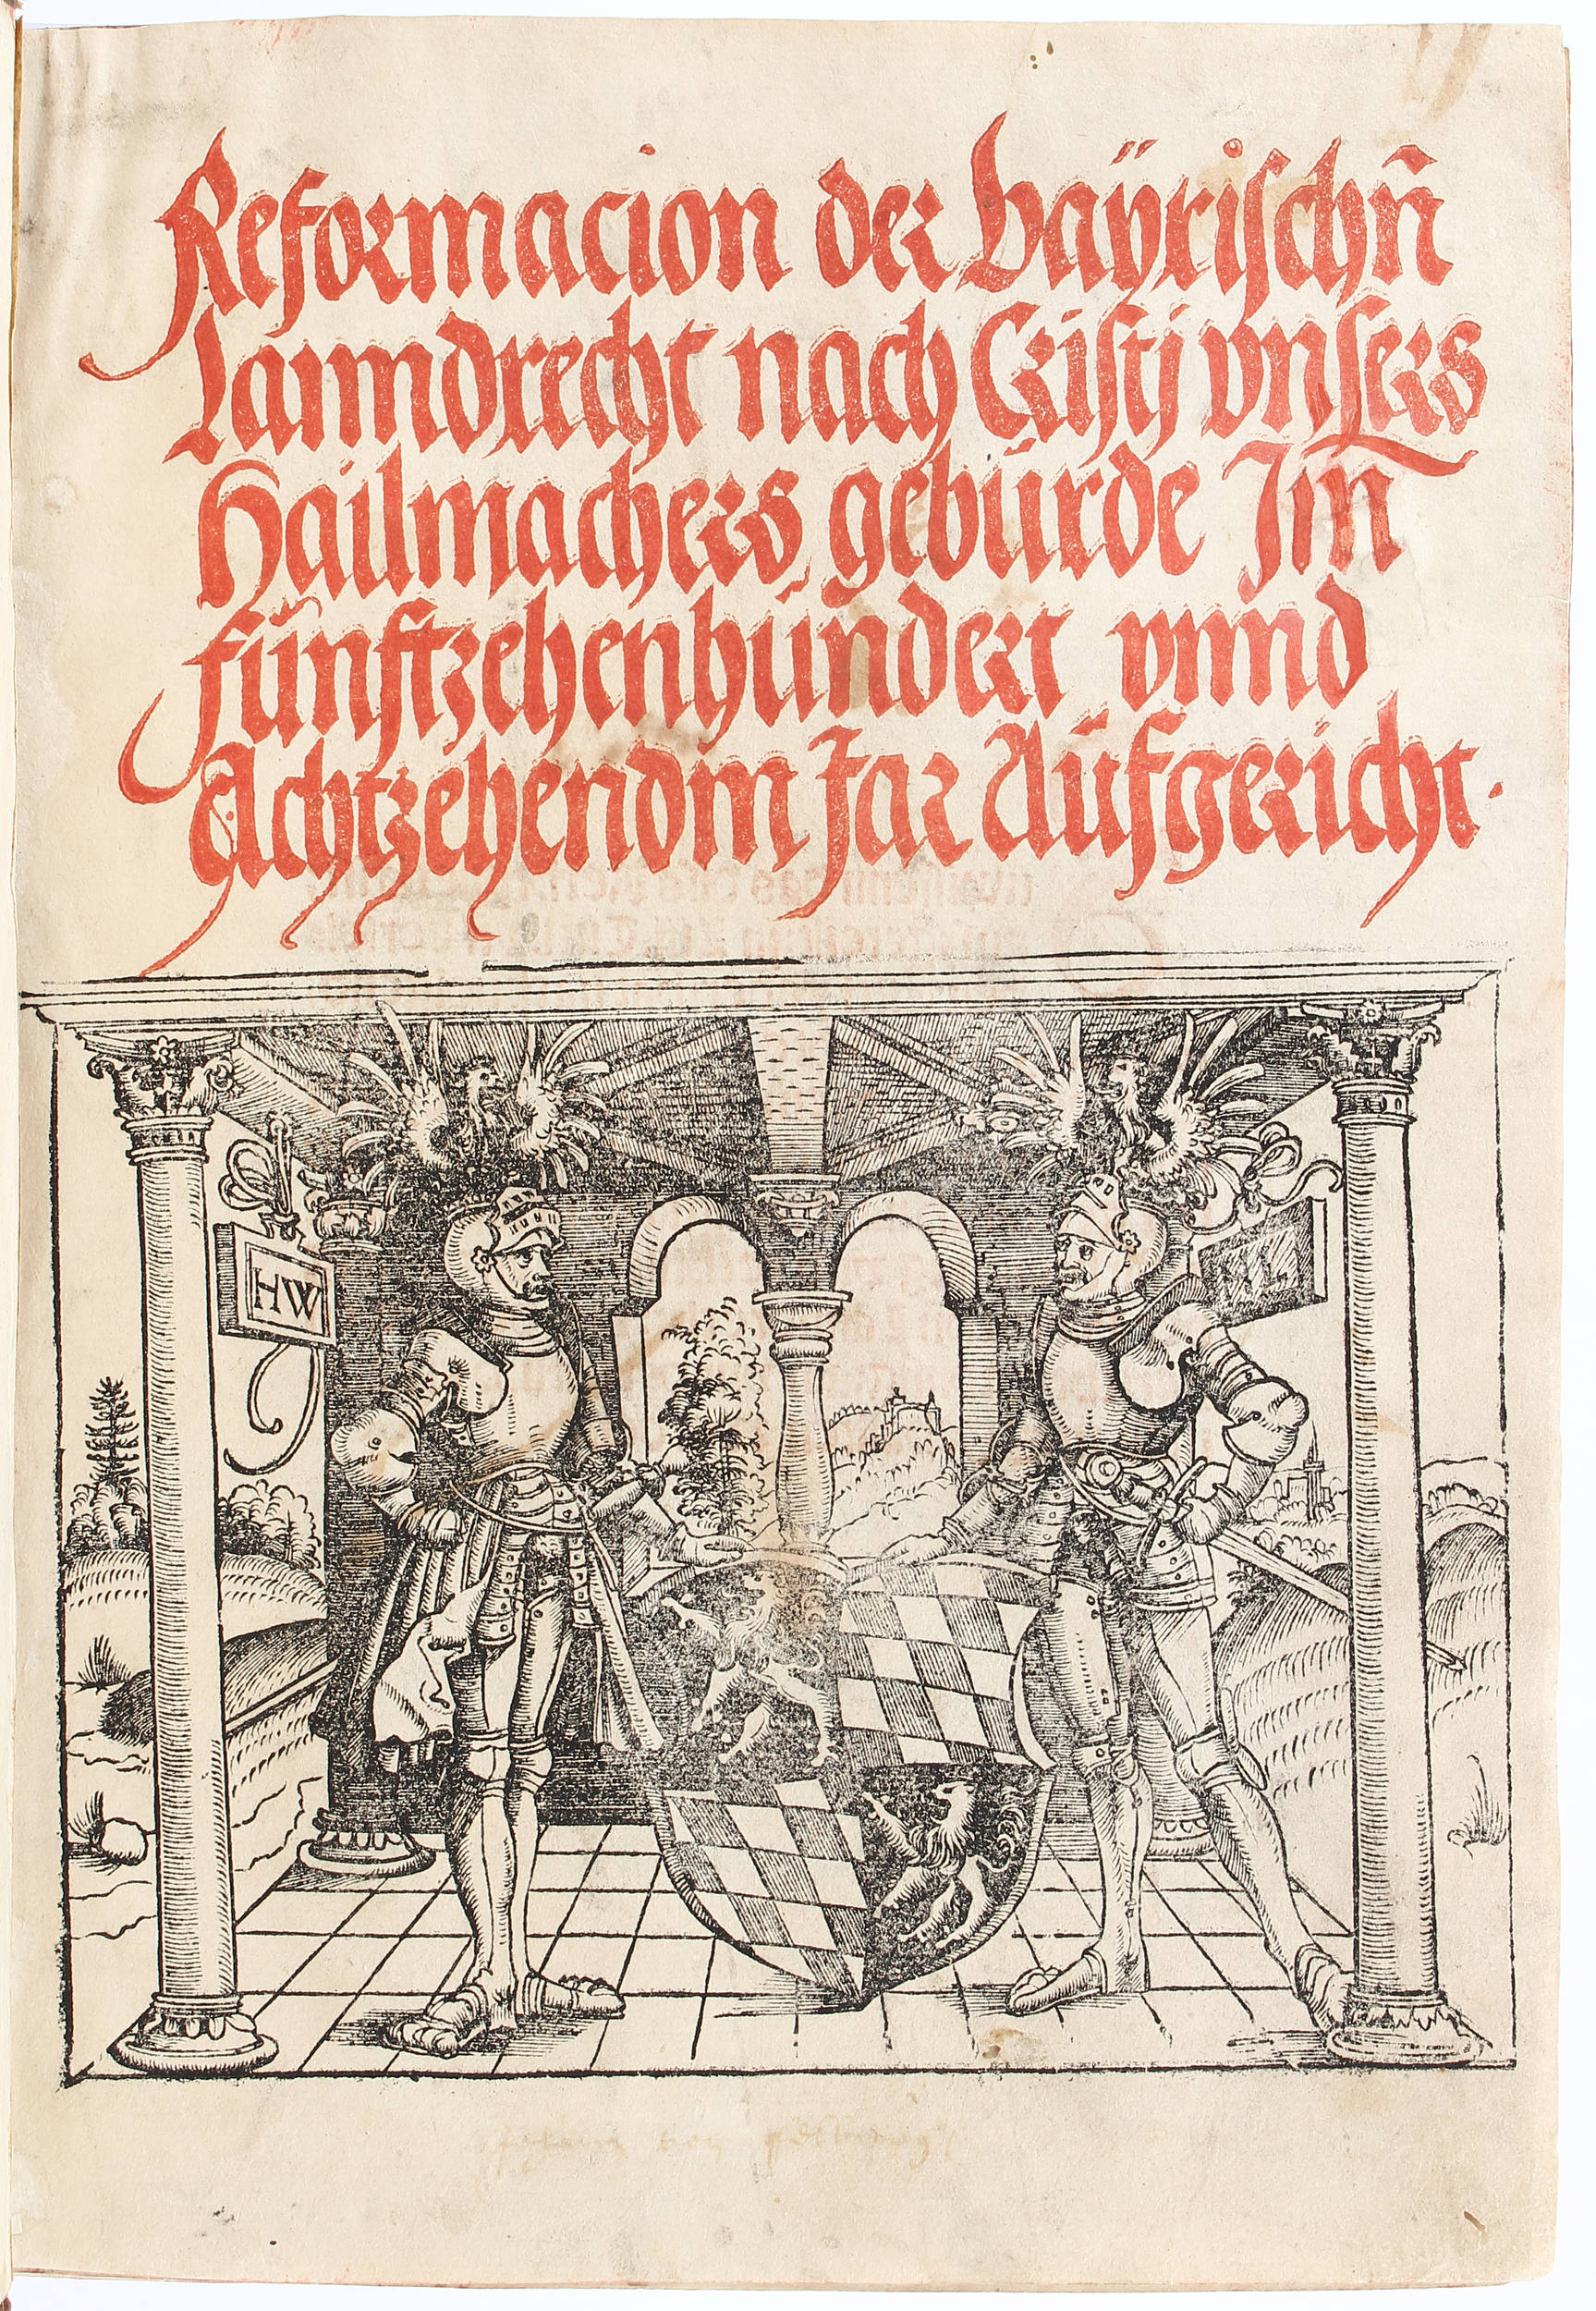 Reformacion der bayrischn̄
Lanndrecht nach Cristj vnsers
Hailmachers gebürde Im
fünftzehenhündert vnnd
Achtzehendm Jar Aůfgericht.
HW